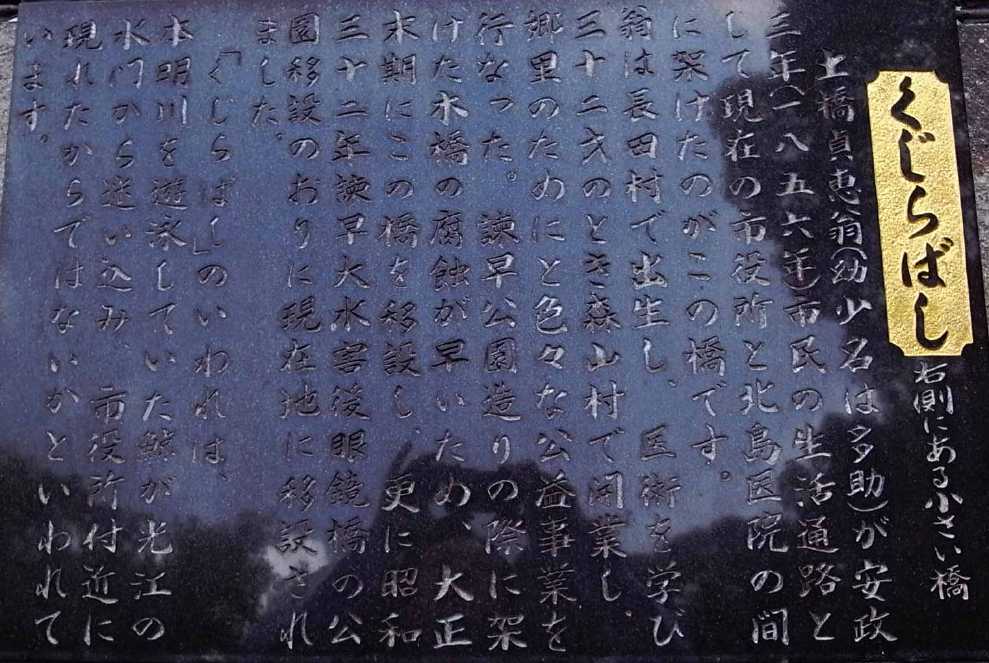 くじらばし
右側にある小さい橋
土橋貞恵翁(幼少名は多助)が安政
三年(一八五六年)市民の生活通路と
して現在の市役所と北島医院の間
に架けたのがこの橋です。
翁は長田村で出生し、医術を学び
三十二才のとき森山村で開業し、
郷里のためにと色々な公益事業を
行なった。諫早公園造りの際に架
けた木橋の腐蝕が早いため、大正
末期にこの橋を移設し、更に昭和
三十二年諫早大水害後眼鏡橋の公
園移設のおりに現在地に移設され
ました。
「くじらばし」のいわれは、
本明川を遊泳していた鯨が光江の
水門から迷い込み、市役所付近に
現れたからではないかといわれて
います。